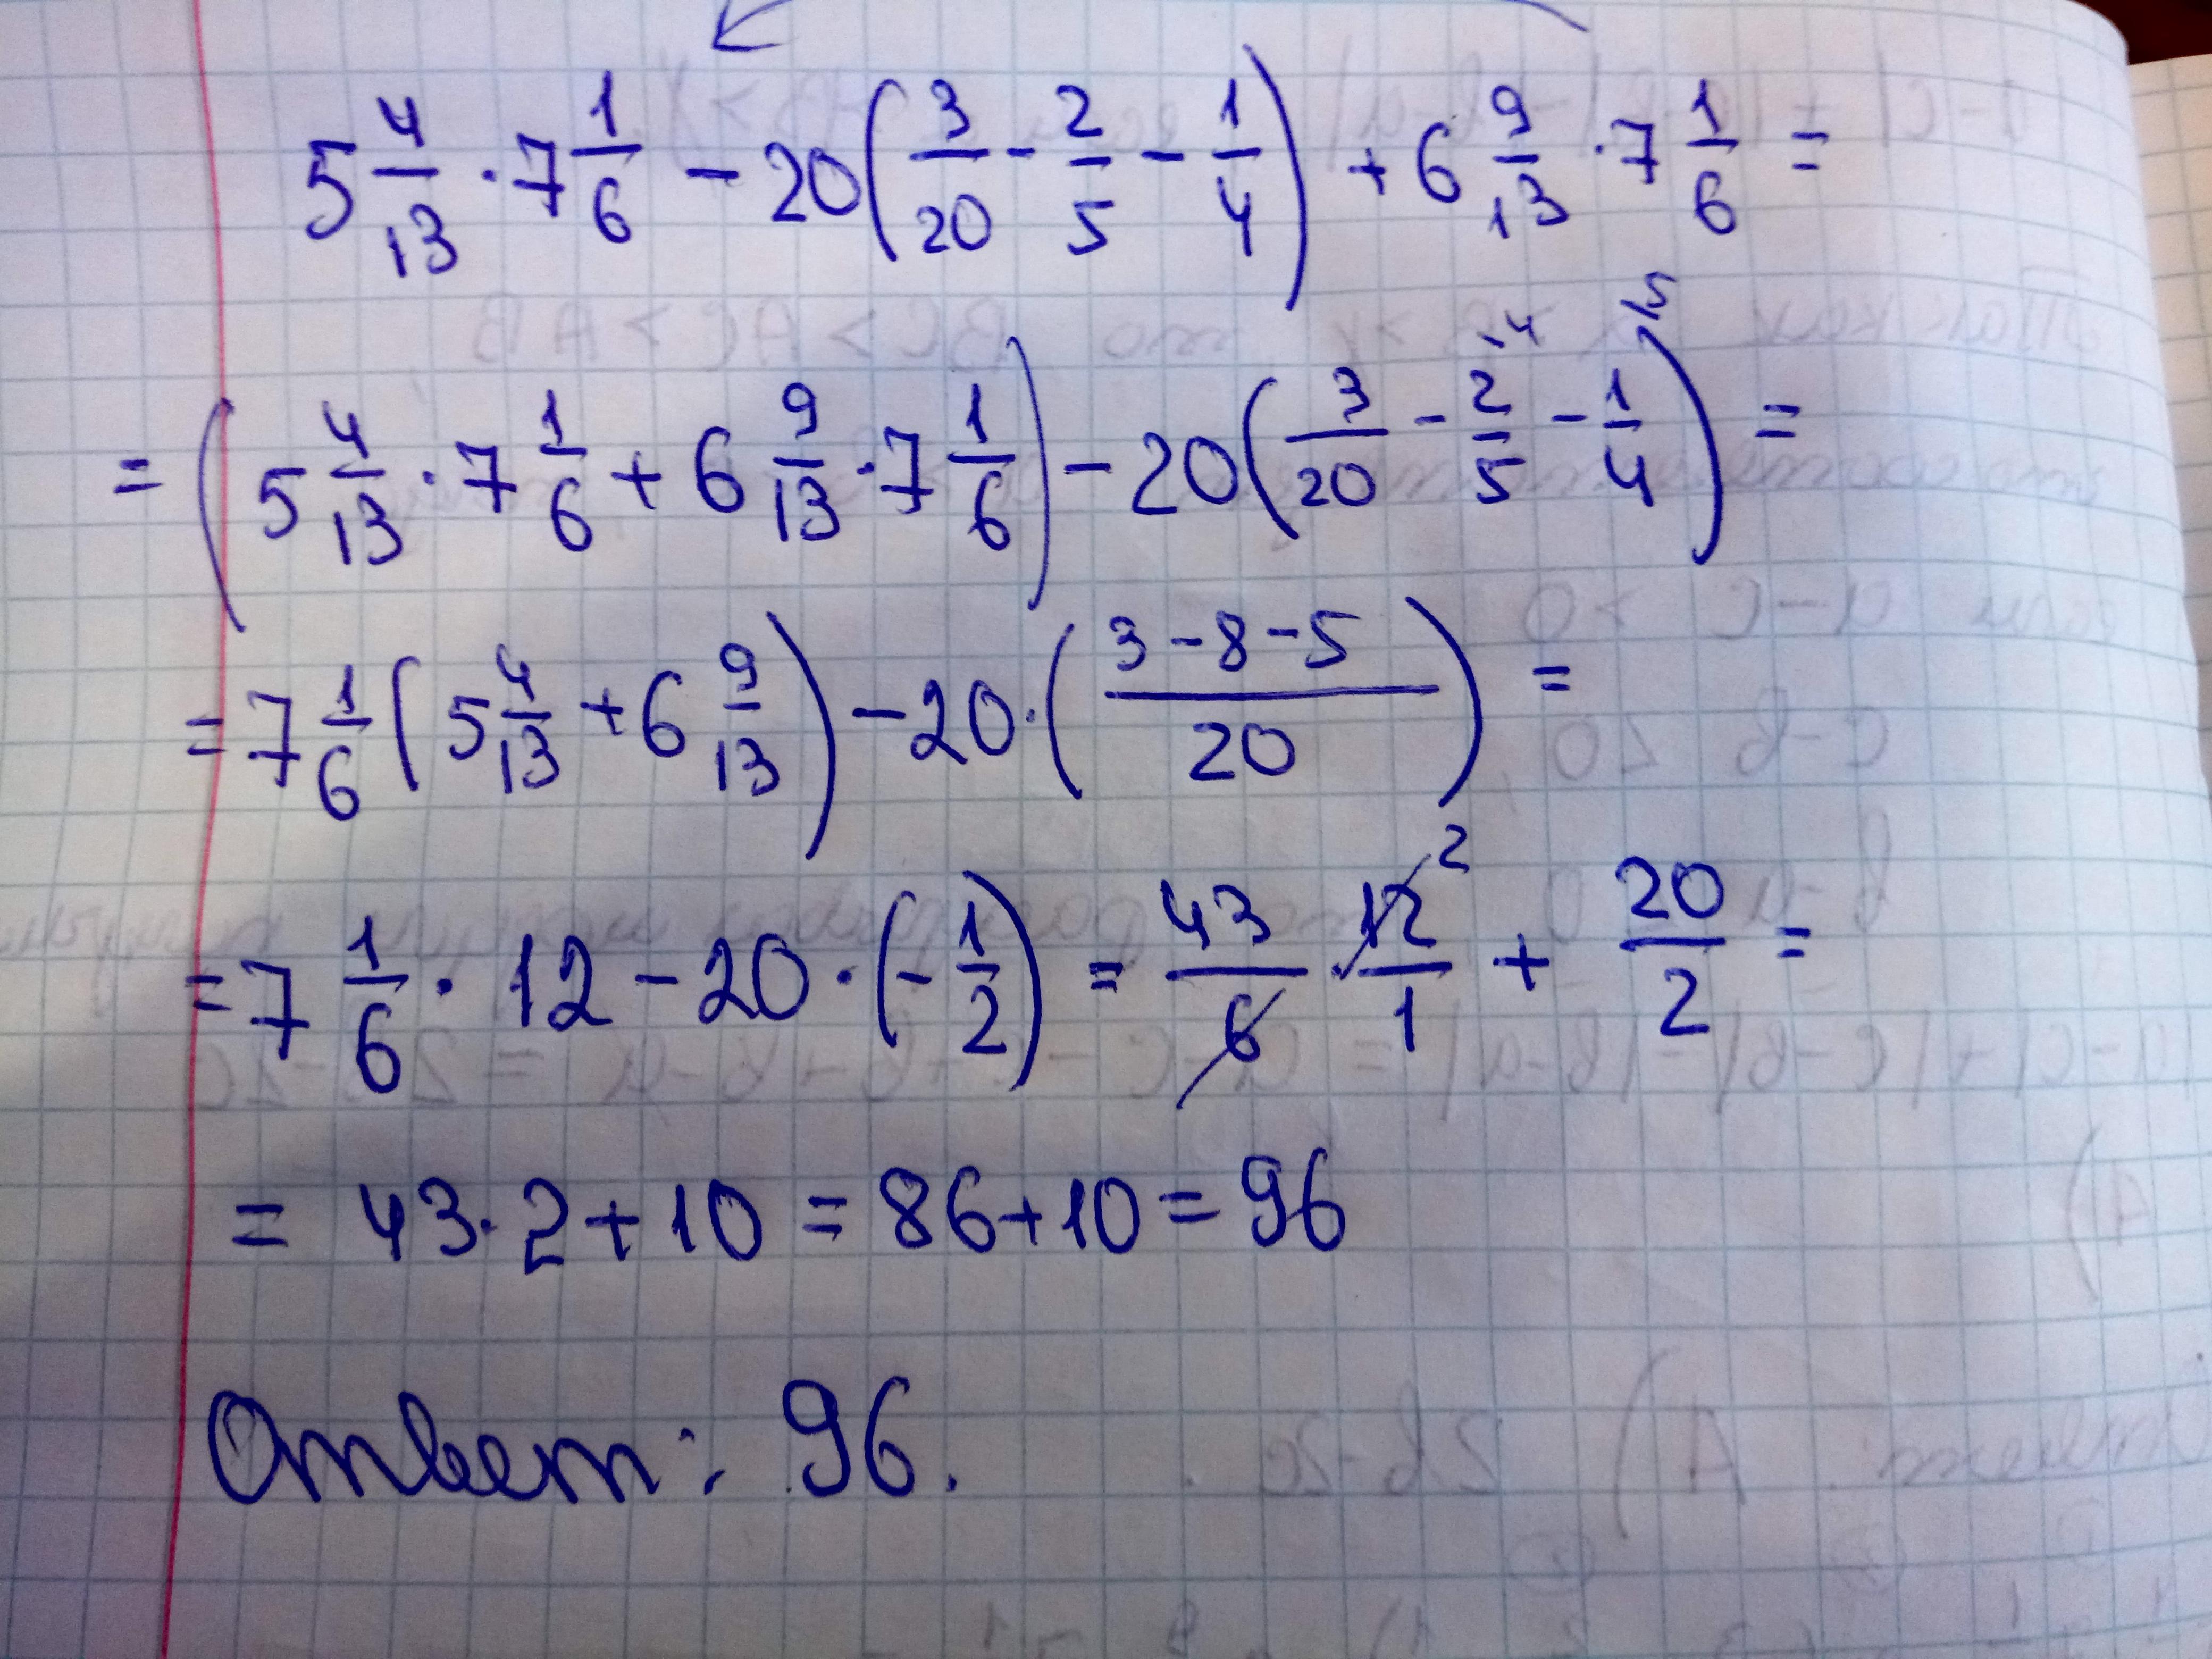 5 4/13 · 7 1/6 - 20(3/20 - 2/5 - 1/4) + 6 9/13 · 7 1/6 =
= (5 4/13 · 7 1/6 + 6 9/13 · 7 1/6) - 20(3/20 - 2/5 \4 - 1/4 \5) =
= 7 1/6 (5 4/13 + 6 9/13) - 20 · ((3 - 8 - 5)/20) =
= 7 1/6 · 12 - 20 · (- 1/2) = 43/6 · 12/1 2 + 20/2 =
= 43 · 2 + 10 = 86 + 10 = 96
Ответ: 96.